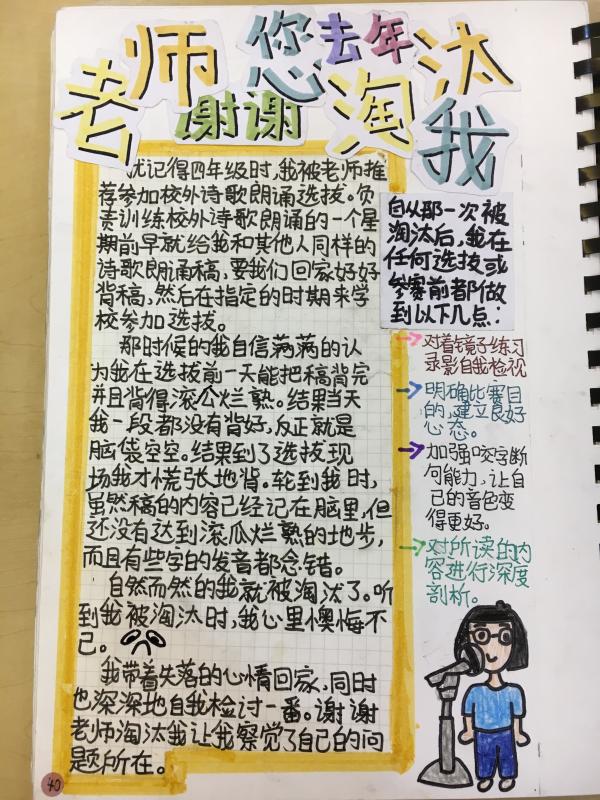 老师谢谢您去年淘汰我
犹记得四年级时,我被老师推
荐参加校外诗歌朗诵选拔。负
责训练校外诗歌朗诵的一个星
期前早就给我和其他人同样的
诗歌朗诵稿,要我们回家好好
背稿,然后在指定的时期来学
校参加选拔。
那时候的我自信满满的认
为我在选拔前一天能把稿背完
并且背得滚瓜烂熟。结果当天
我一段都没有背好,反正就是
脑袋空空。结果到了选拔现
场我才慌张地背。轮到我时,
虽然稿的内容已经记在脑里,但
还没有达到滚瓜烂熟的地步,
而且有些字的发音都念错。
自然而然的我就被淘汰了。听
到我被淘汰时,我心里懊悔不
已。
我带着失落的心情回家,同时
也深深地自我检讨一番。谢谢
老师淘汰我让我察觉了自己的问
题所在。
自从那一次被
淘汰后,我在
任何选拔或
参赛前都做
到以下几点:
对着镜子练习
录影自我检视
明确比赛目
的,建立良好
心态。
加强咬字断
句能力,让自
己的音色变
得更好。
对所读的内
容进行深度
剖析。
40